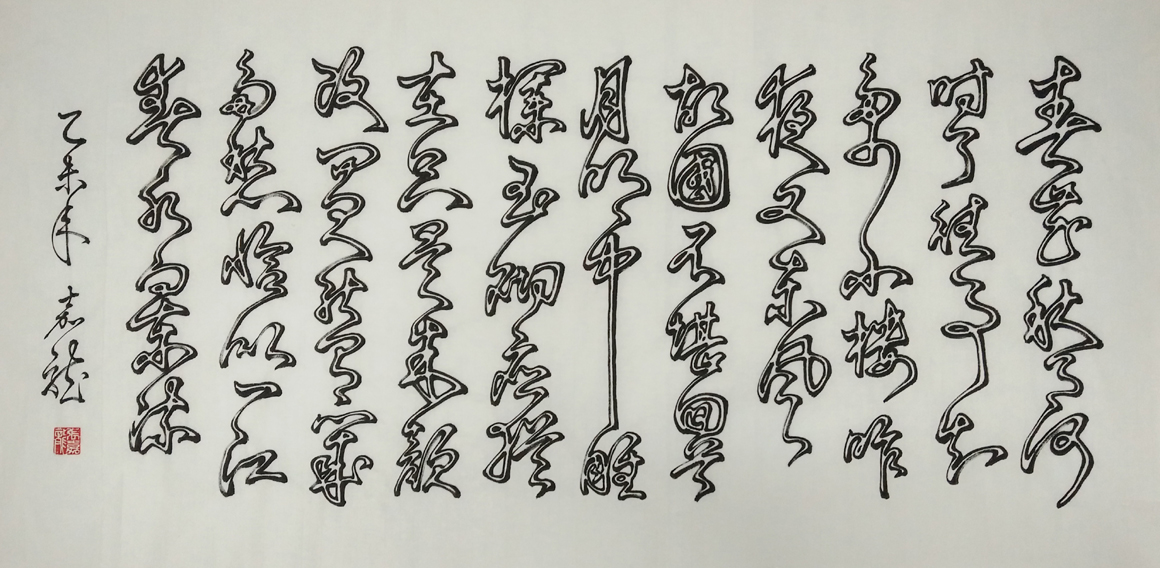 春花秋月何
时了往事知
多少小楼昨
夜又东风
故國不堪回首
月明中雕
栏玉砌应犹
在只是朱颜
改问君能有几
多愁恰似一江
春水向东流
乙未年 嘉龙